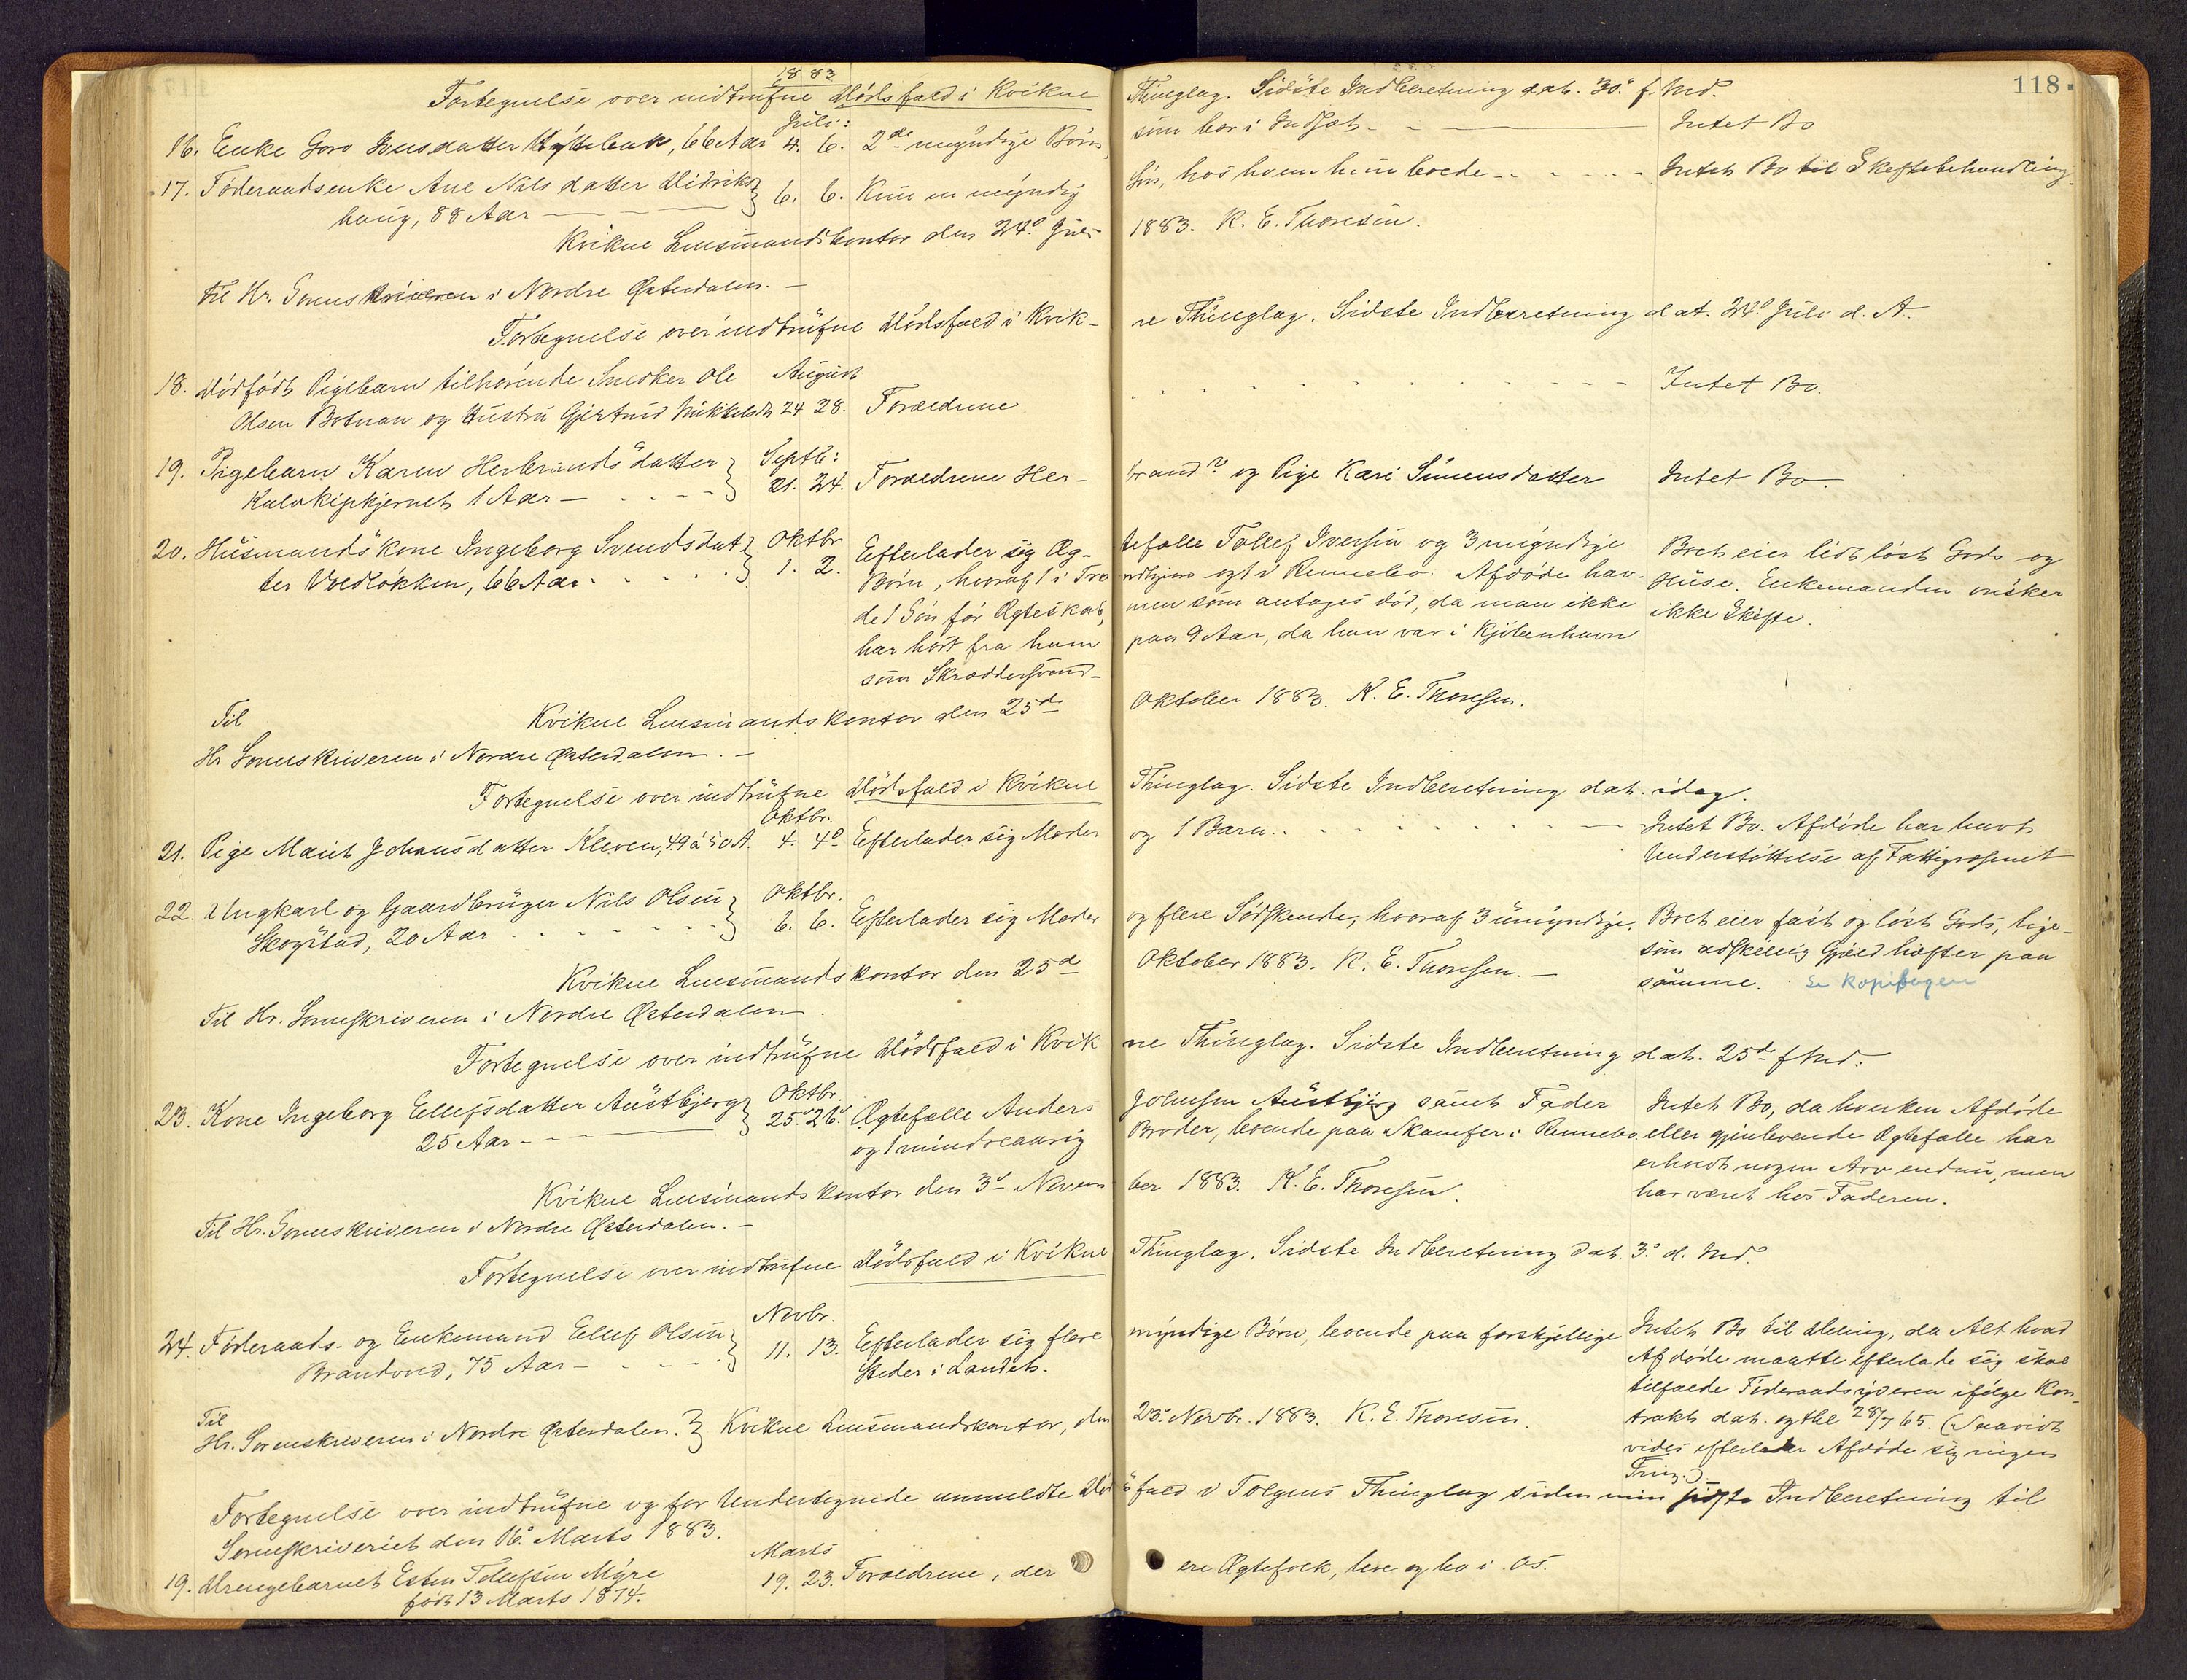 118.
1883
Fortegnelse over indtrufne Dødsfald i Kvikne Thinglag. Sidste Indberetning dat. 30' f. Md.
Juli:
16. Enke Goro Jensdatter, 66 Aar 4. 6. 2de myndige Børn, som bor i Indset - - Intet Bo
17. Føderaadsenke Ane Nilsdatter Didriks- 6. 6. Kun en myndig Søn, hos hvem hun boede - - - - Intet Bo til Skiftebehandling.
haug, 88 Aar
Kvikne Lensmandskontor den 24' Juli 1883. K. E. Thoresen.
Til Hr. Sorenskriveren i Nordre Østerdalen. -
Fortegnelse over indtrufne Dødsfald i Kvik-ne Thinglag. Sidste Indberetning dat. 24' Juli d. A.
18. Dødfødt Pigebarn tilhørende Snedker Ole August
Olsen Botnan og Hustru Gjertrud Mikkelsdt 24 28. Forældrene - - - - Intet Bo.
19. Pigebarn Karen Herbrandsdatter Septb:
Kaloskipkjernet 1 Aar - - - - 21. 24. Forældrene Her-brand? og Pige Kari Simensdatter Intet Bo.
20. Husmandskone Ingeborg Svendsdat- Oktbr
ter Volløkken, 66 Aar - - - - 1. 2. Efterlader sig Æg-tefælle Tollef Iversen og 3 myndige Boet eier lidt løst Gods og
Børn, hvoraf 1 i Tro-ndhjem og 1 i Rennebo. Afdøde hav- Huse. Enkemanden ønsker
de 1 Søn før Ægteskab, men som antages død, da man ikke ikke Skifte.
har hørt fra ham paa 9 Aar, da han var i Kjøbenhavn
som Skræddersvend -
Til Kvikne Lensmandskontor den 25de Oktober 1883. K. E. Thoresen.
Hr Sorenskriveren i Nordre Østerdalen. -
Fortegnelse over indtrufne Dødsfald i Kvikne Thinglag. Sidste Indberetning dat. idag.
Oktbr.
21. Pige Marit Johansdatter Kleven, 49 à 50 A. 4. 4' Efterlader sig Moder og 1 Barn - - - - Intet Bo. Afdøde har havt
Understøttelse af Fattigvæsenet
22. Ungkarl og Gaardbruger Nils Olsen Oktbr.
Skogstad, 20 Aar - - - - 6. 6. Efterlader sig Moder og flere Sødskende, hvoraf 3 umyndige. Boet eier fast og løst Gods, lige-
som adskillig Gjæld hæfter paa
Kvikne Lensmandskontor den 25de Oktober 1883. K. E. Thoresen. - samme. Se Kopibogen
Til Hr. Sorenskriveren i Nordre Østerdalen.
Fortegnelse over indtrufne Dødsfald i Kvik ne Thinglag. Sidste Indberetning dat. 25de f Md.
23. Kone Ingeborg Ellefsdatter Austbjerg Oktbr.
25 Aar - - 25' 26' Ægtefælle Anders Johnsen Austbjerg samt Fader Intet Bo, da hverken Afdøde
og 1 mindreaarig Broder, boende paa Skamfer i Rennebo. eller gjenlevende Ægtefælle har
erholdt nogen Arv endnu, men
har været hos Faderen.
Kvikne Lensmandskontor den 3' Novem ber 1883. K. E. Thoresen.
Til Hr. Sorenskriveren i Nordre Østerdalen. -
Fortegnelse over indtrufne Dødsfald i Kvikne Thinglag. Sidste Indberetning dat. 3' d. Md.
Novbr.
24. Føderaads- og Enkemand Ellef Olsen 11. 13. Efterlader sig flere myndige Børn, boende paa forskjellige Intet Bo til Deling, da Alt hvad
Brandvold, 75 Aar - - - - Steder i Landet. Afdøde maatte efterlade sig skal
tilfalde Føderaadsyderen ifølge Kon-
trakt dat. og thl 28/7 65. (Saavidt
vides efterlader Afdøde sig ingen
Ting.)
Til
Hr. Sorenskriveren i Nordre Østerdalen. Kvikne Lensmandskontor, den 23' Novbr. 1883. K. E. Thoresen.
Fortegnelse over indtrufne og for Undertegnede anmeldte Dødsfald i Tolgens Thinglag siden min sidste Indberetning til
Sorenskriveriet den 16' Marts 1883.
Marts
19. Drengebarnet Esten Tollefsen Myre 19. 23. Forældrene, der ere Ægtefolk, leve og bo i Os.
født 13 Marts 1874.